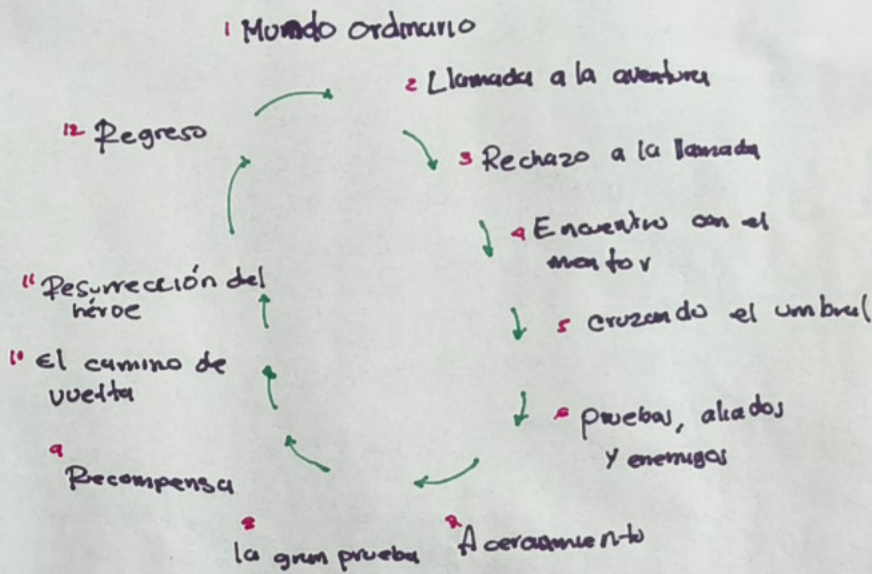 1 Mundo ordinario
2 Llamada a la aventura
3 Rechazo a la llamada
4 Encuentro con el
mentor
5 cruzando el umbral
6 pruebas, aliados
y enemigos
Acercamiento
8 la gran prueba
9
Recompensa
10 El camino de
vuelta
11 Resurrección del
héroe
12 Regreso